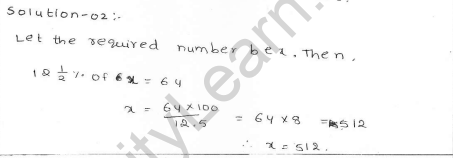 Solution-02:-
Let the required number be x. Then,
12 1/2 % of x = 64
x = 64×100/12.5 = 64×8 = 512
∴ x = 512.